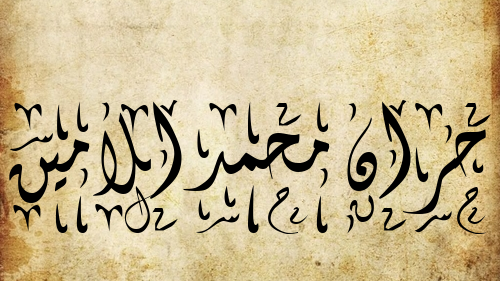 حران محمد الامين